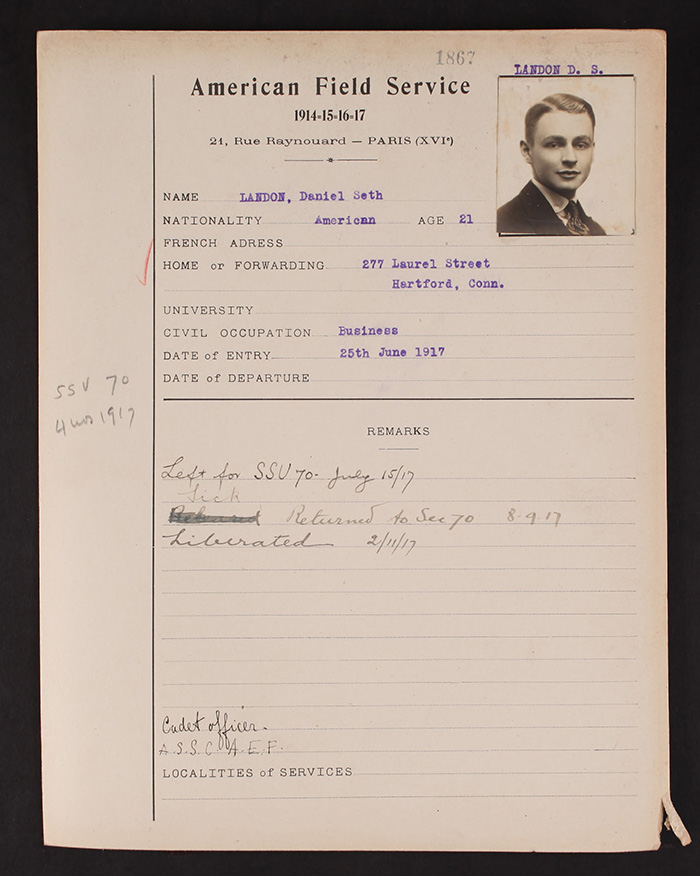 1867
LANDON D. S.
American Field Service
1914=15=16=17
21, Rue Raynouard — PARIS (XVIe)
NAME LANDON, Daniel Seth
NATIONALITY American AGE 21
FRENCH ADRESS
HOME or FORWARDING 277 Laurel Street
Hartford, Conn.
UNIVERSITY
CIVIL OCCUPATION Business
DATE of ENTRY 25th June 1917
DATE of DEPARTURE
SSU 70
4 mos 1917
REMARKS
Left for SSU 70- July 15/17
Sick
Returned to Sec 70 8-9-17
Liberated 2/11/17
Cadet officer.
A.S.S.C. A.E.F.
LOCALITIES of SERVICES